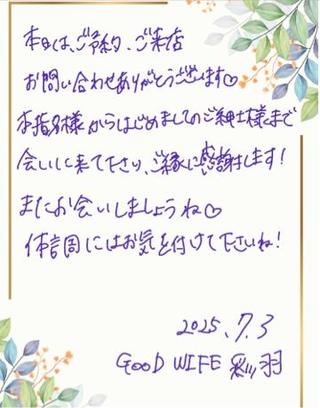 本日は、ご予約、ご来店
お問い合わせありがとうございます♡
本指名様からはじめましてのご紳士様まで
会いに来て下さり、ご縁に感謝します!
またお会いしましょうね♡
体調にはお気を付けて下さいね!
2025.7.3
GOOD WIFE 彩羽